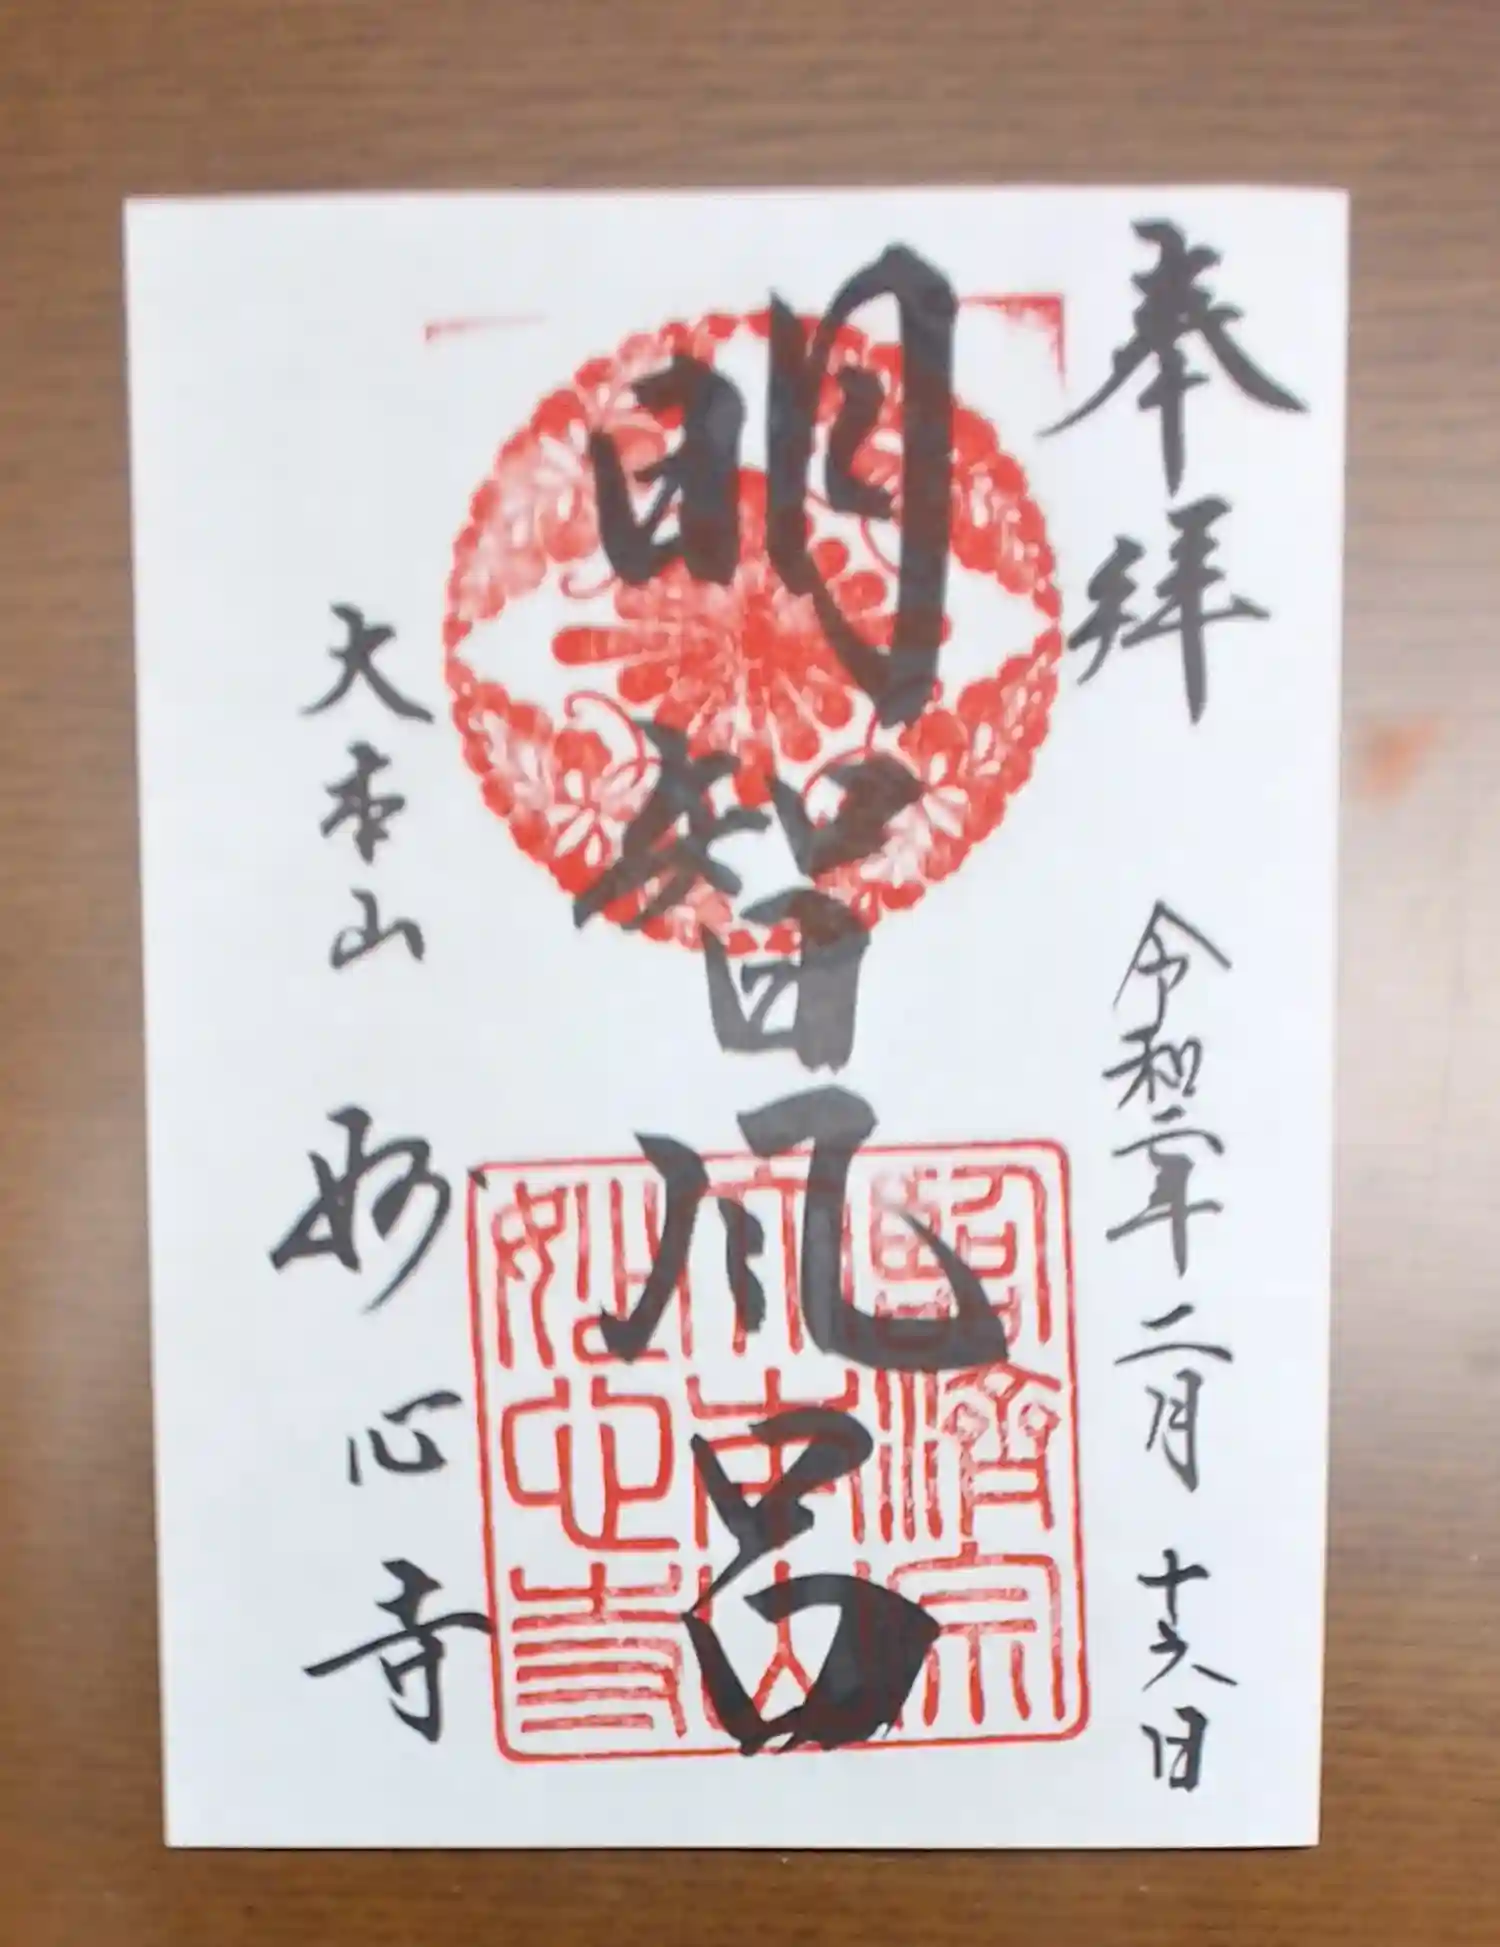 奉拝
令和二年二月十六日
明智風呂
臨済宗
大本山
妙心寺
大本山
妙心寺